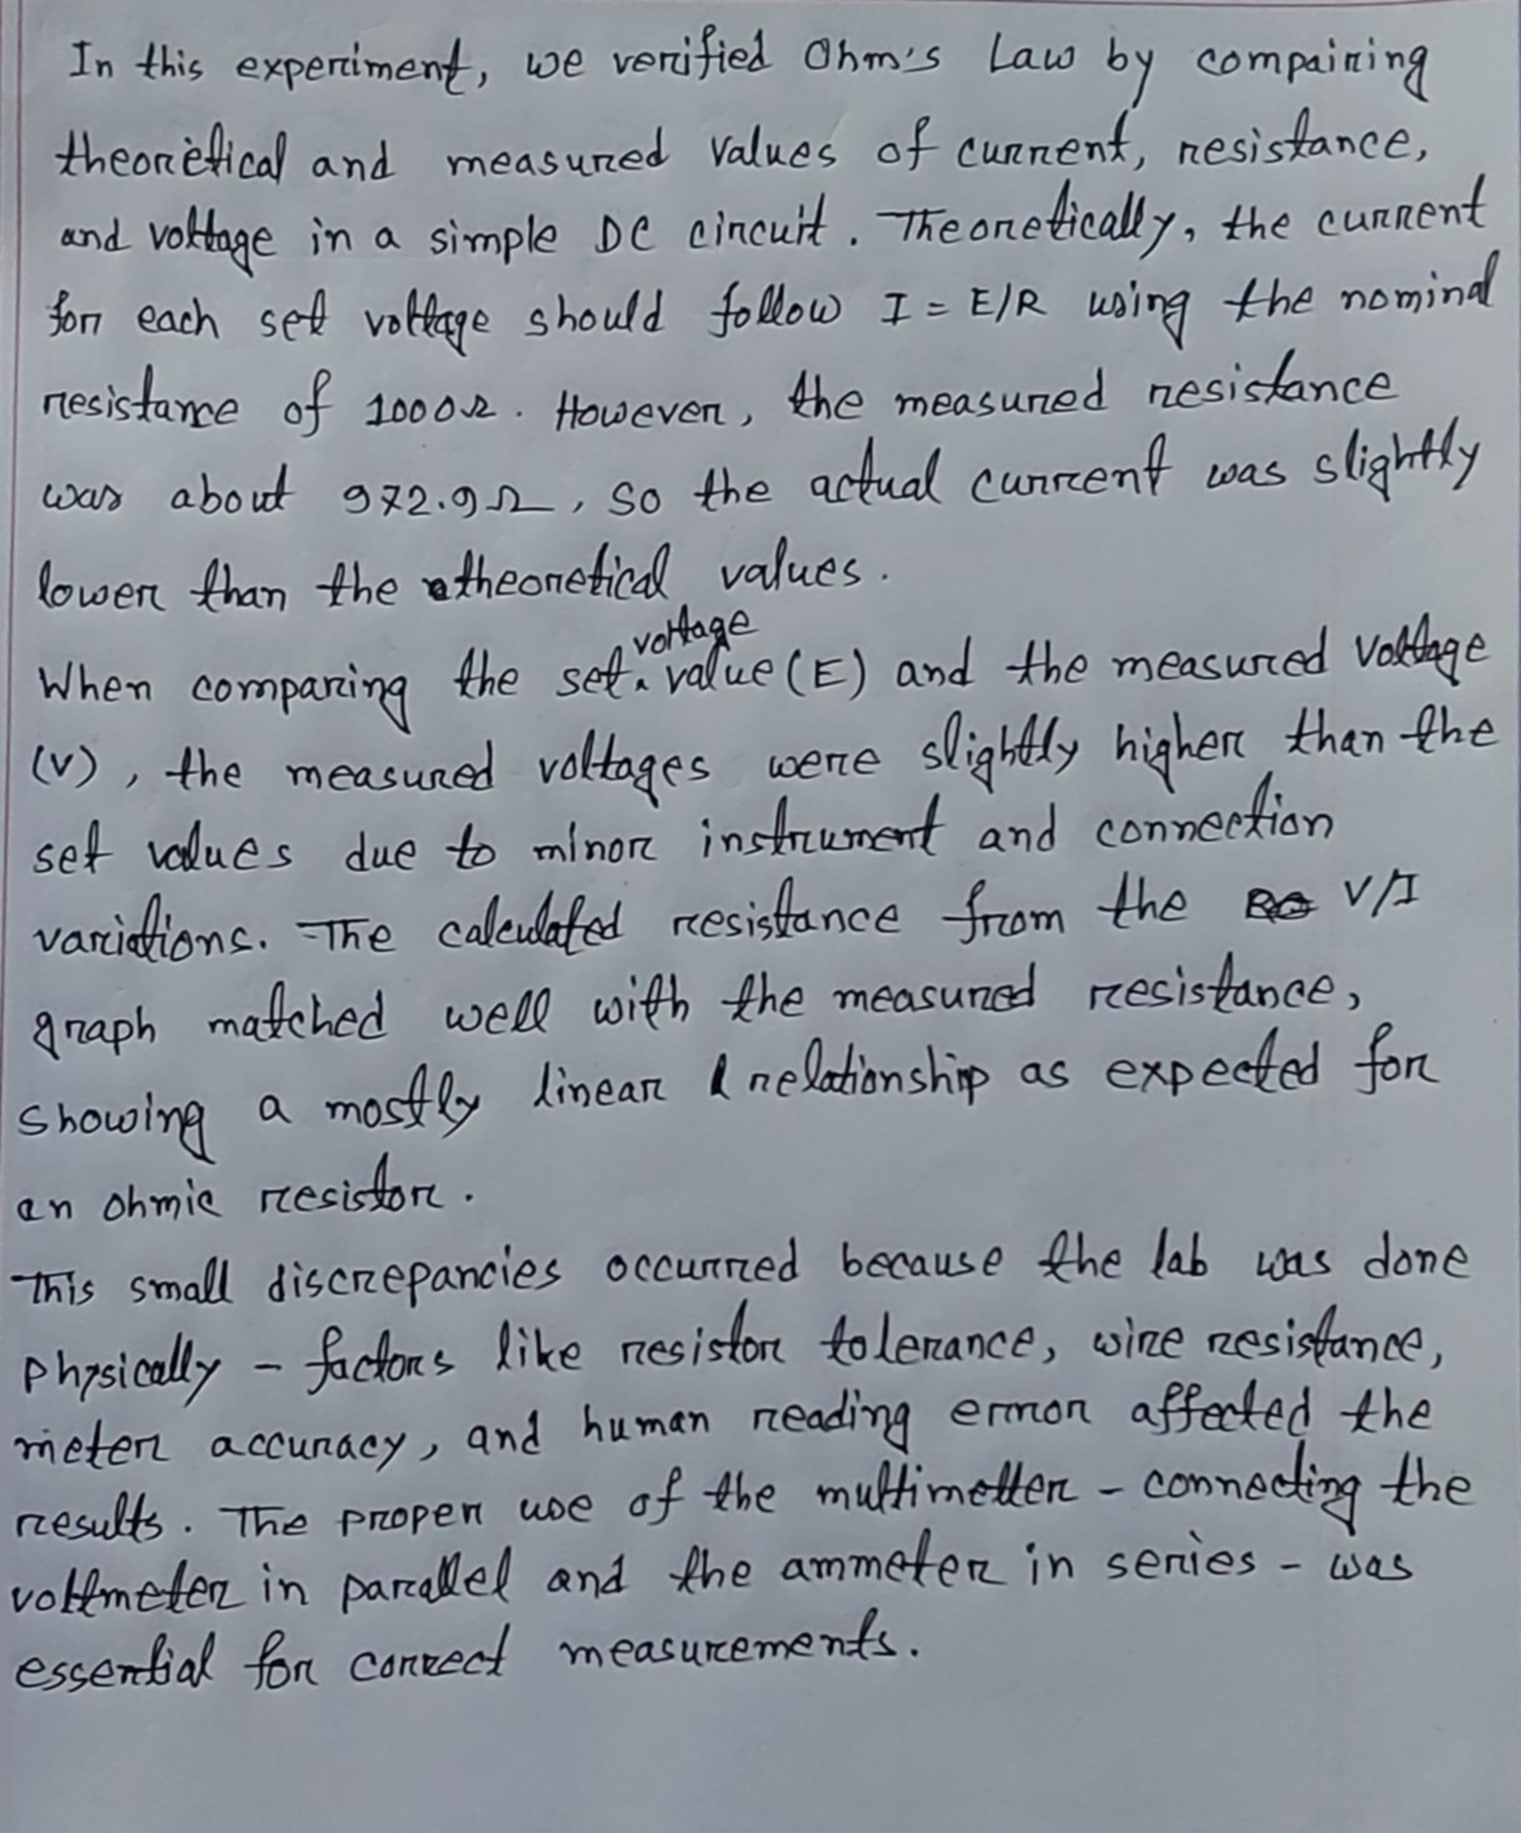 In this experiment, we verified Ohm's Law by compairing
theoretical and measured values of current, resistance,
and voltage in a simple DC circuit. Theoretically, the current
for each set voltage should follow I = E/R using the nominal
resistance of 1000Ω. However, the measured resistance
was about 972.9Ω, so the actual current was slightly
lower than the theoretical values.
When comparing the set voltage value (E) and the measured voltage
(V), the measured voltages were slightly higher than the
set values due to minor instrument and connection
variations. The calculated resistance from the V/I
graph matched well with the measured resistance,
showing a mostly linear relationship as expected for
an ohmic resistor.
This small discrepancies occurred because the lab was done
physically - factors like resistor tolerance, wire resistance,
meter accuracy, and human reading error affected the
results. The proper use of the multimetter - connecting the
voltmeter in parallel and the ammeter in series - was
essential for correct measurements.